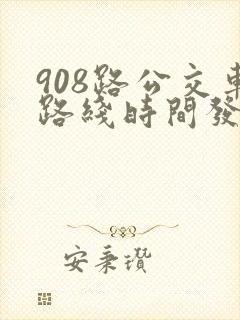 908路公交車
路綫時間發
安秉瓚